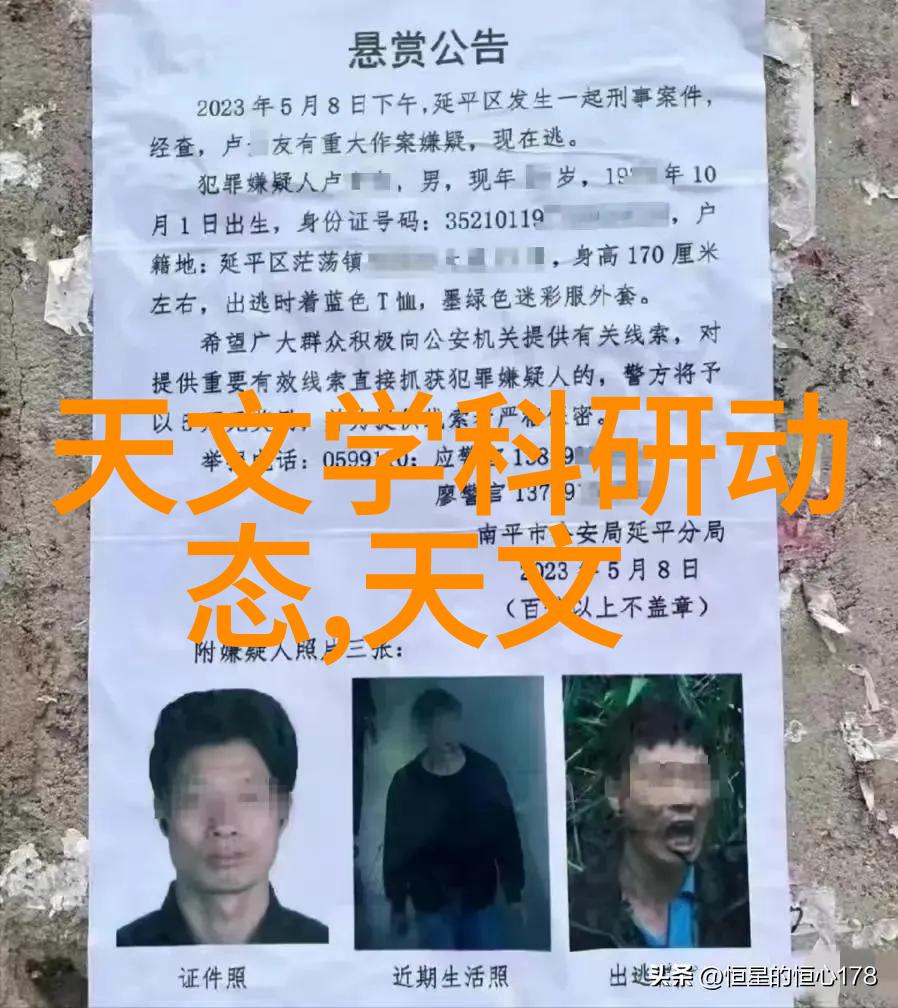 悬赏公告
2023年5月8日下午，延平区发生一起刑事案件，
经查，卢 友有重大作案嫌疑，现在逃。
犯罪嫌疑人卢 ，男，现年 岁，19 年10
月1日出生，身份证号码：35210119 ，户
籍地：延平区茫荡镇 ，身高170厘米
左右，出逃时着蓝色T恤，墨绿色迷彩服外套。
希望广大群众积极向公安机关提供有关线索，对
提供重要有效线索直接抓获犯罪嫌疑人的，警方将予
以 密。
天文学科研动
举报电话：0599110；应警官138 9
廖警官137 9
南平市公安局延平分局
态,天文
2023年5月8日
（百 以上不盖章）
附嫌疑人照片三张：
证件照
近期生活照
出逃
头条 @恒星的恒心178